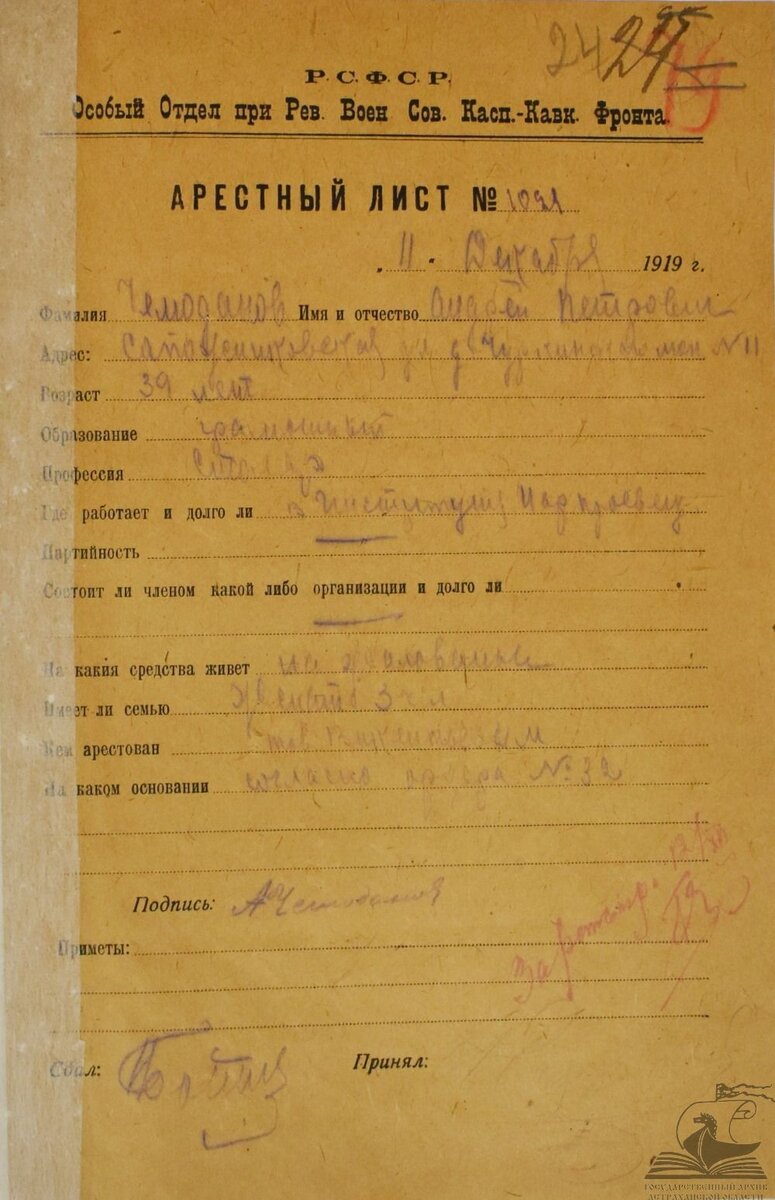 24 24 95
19
Р.С.Ф.С.Р.
Особый Отдел при Рев. Воен Сов. Касп.-Кавк. Фронта.
АРЕСТНЫЙ ЛИСТ № 1021
„ 11 " Декабря 1919 г.
Фамилия Чемоданов Имя и отчество Андрей Петрович
Адрес: ул д № 11
Возраст 39 лет
Образование грамотный
Профессия столяр
Где работает и долго ли в Институте
Партийность
Состоит ли членом какой либо организации и долго ли
На какия средства живет на жалованье
Имеет ли семью 3 чел
Кем арестован тов
На каком основании согласно ордера № 32
Подпись: АЧемоданов
12/XII
Приметы:
Сдал: Принял:
ГОСУДАРСТВЕННЫЙ АРХИВ
АСТРАХАНСКОЙ ОБЛАСТИ